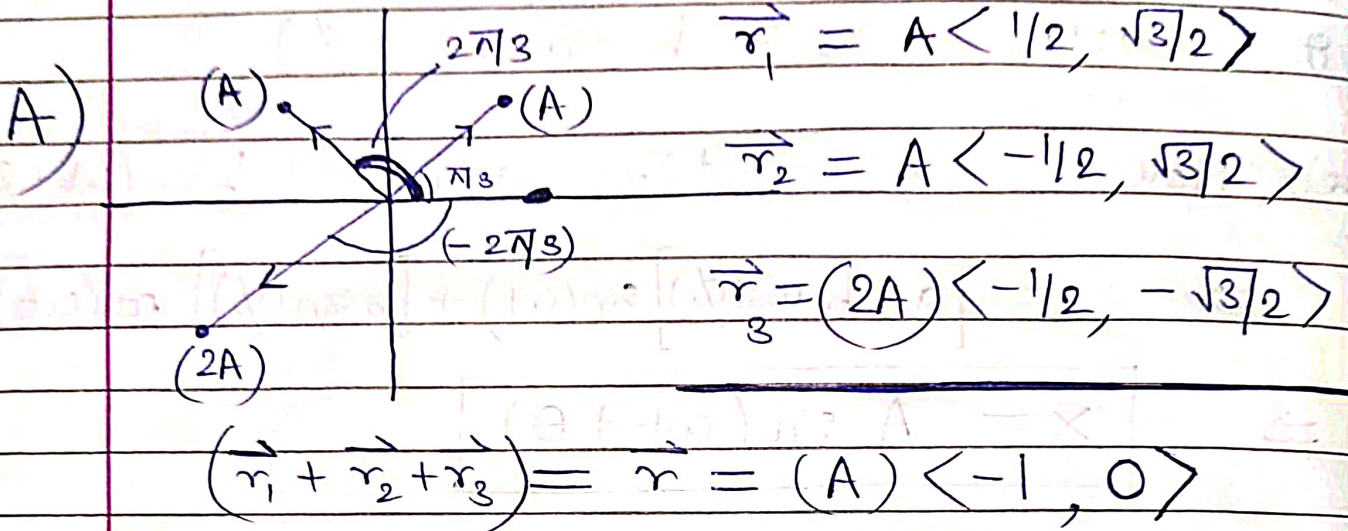 A)
2π/3
(A)
(A)
π/3
(-2π/3)
(2A)
r⃗₁ = A<1/2, √3/2>
r⃗₂ = A<-1/2, √3/2>
r⃗₃ = (2A)<-1/2, -√3/2>
(r⃗₁ + r⃗₂ + r⃗₃) = r⃗ = (A)<-1, 0>